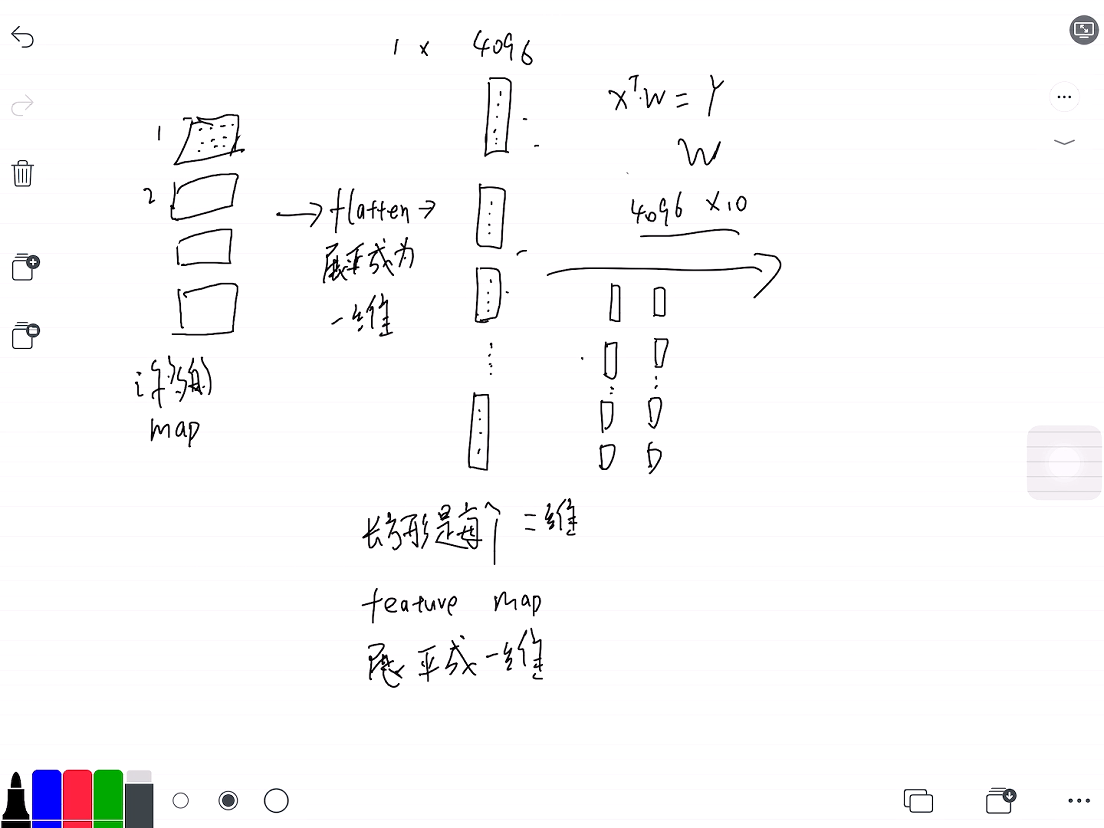 1 × 4096
x^T·W = Y
W
4096 ×10
1
2
→ flatten →
展平成为
一维
许多的
map
长方形是每个二维
feature map
展平成一维